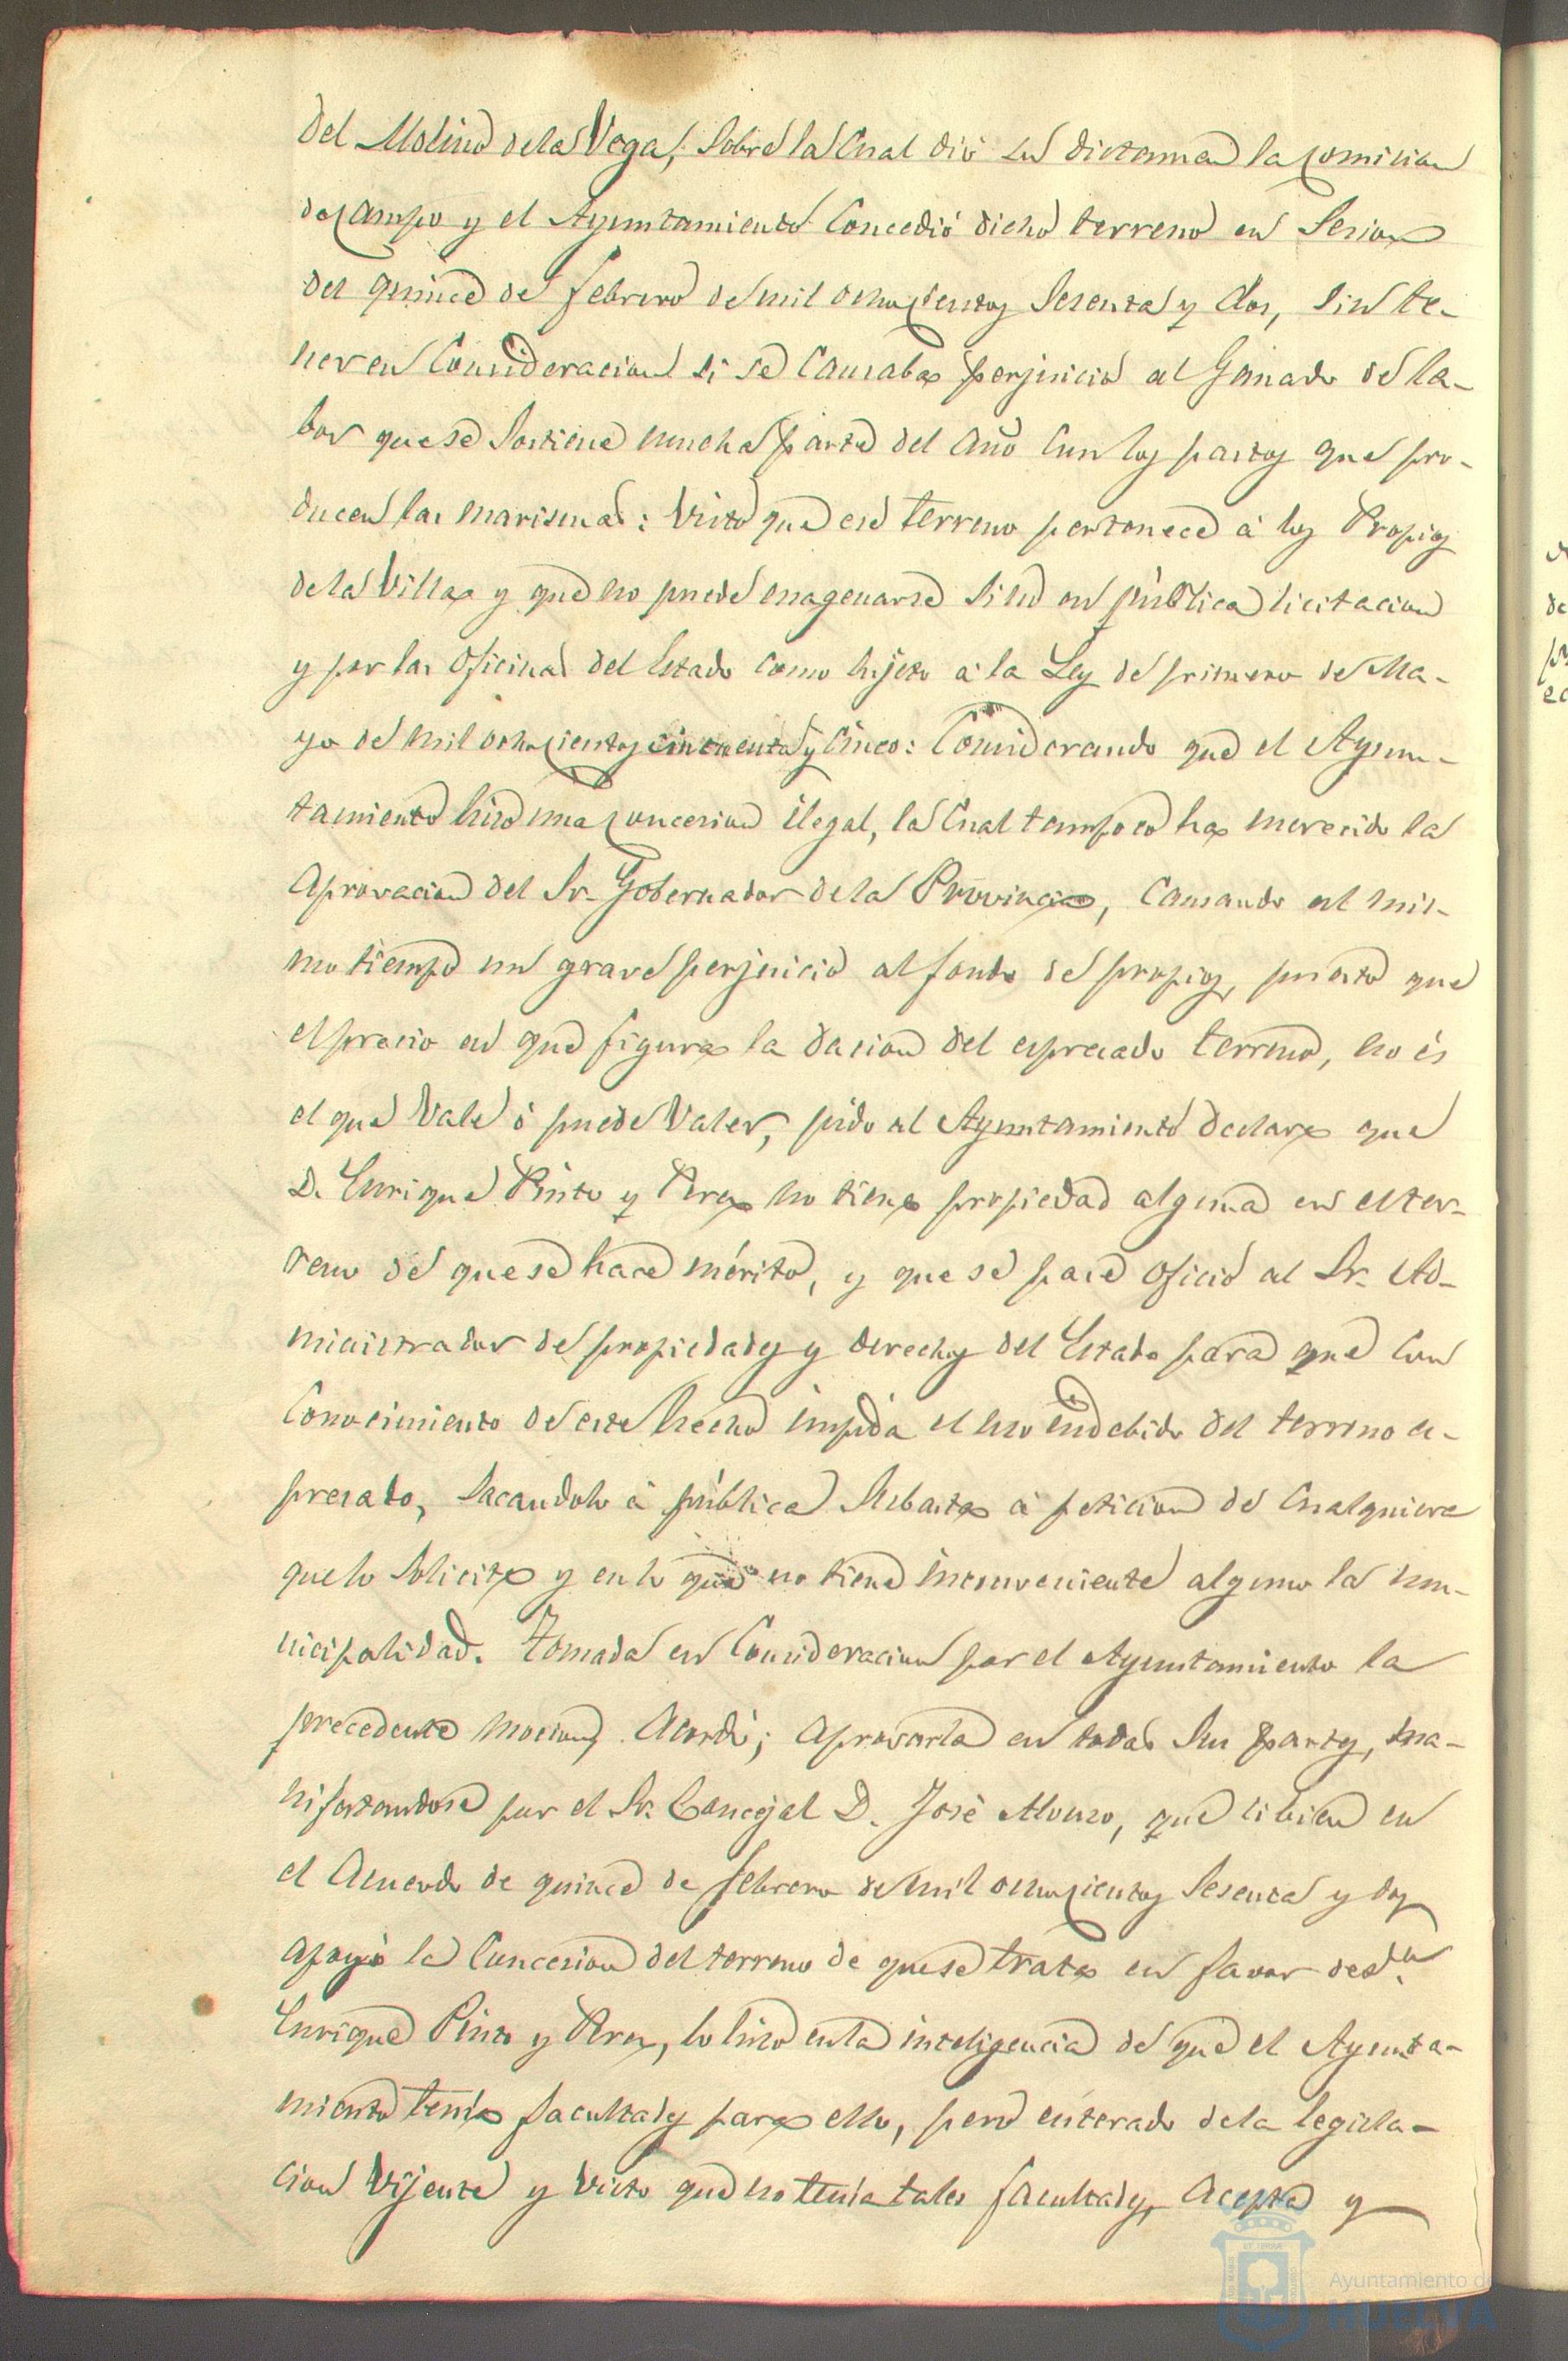 del Molino de la Vega, sobre la cual dió su dictamen la comision
de campo y el Ayuntamiento concedió dicho terreno en sesion
del quince de febrero de mil ochocientos sesenta y dos, sin te-
ner en consideracion si se causaba perjuicio al ganado de la-
bor que se sostiene mucha parte del año con los pastos que pro-
ducen las marismas: Visto que ese terreno pertenece á los Propios
de la Villa y que no puede enagenarse sino en pública licitacion
y por las oficinas del Estado como sujeto á la Ley de primero de Ma-
yo de mil ochocientos cincuenta y cinco: Considerando que el Ayun-
tamiento hizo una concesion ilegal, la cual tampoco ha merecido la
aprovacion del Sr. Gobernador de la Provincia, causando al mis-
mo tiempo un grave perjuicio al fondo de propios, puesto que
el precio en que figura la dacion del espresado terreno, no és
el que vale ó puede valer, pido al Ayuntamiento declare que
D. Enrique Pinto y Area no tiene propiedad alguna en el ter-
reno de que se hace mérito, y que se pase oficio al Sr. Ad-
ministrador de propiedades y derechos del Estado para que con
conocimiento de este hecho impida el uso indebido del terreno es-
presado, sacandolo á pública subasta á peticion de cualquiera
que lo solicite y en lo que no tiene inconveniente alguno la mu-
nicipalidad. Tomada en consideracion por el Ayuntamiento la
precedente mocion, Acordó; aprovarla en todas sus partes, ma-
nifestandose por el Sr. Concejal D. José Alonso, que si bien en
el acuerdo de quince de febrero de mil ochocientos sesenta y dos
apoyó la concesion del terreno de que se trata en favor de Dn.
Enrique Pinto y Area, lo hizo en la inteligencia de que el Ayunta-
miento tenía facultades para ello, pero enterado de la legisla-
cion vijente y visto que no tenia tales facultades, acepta y
Ayuntamiento de
HUELVA